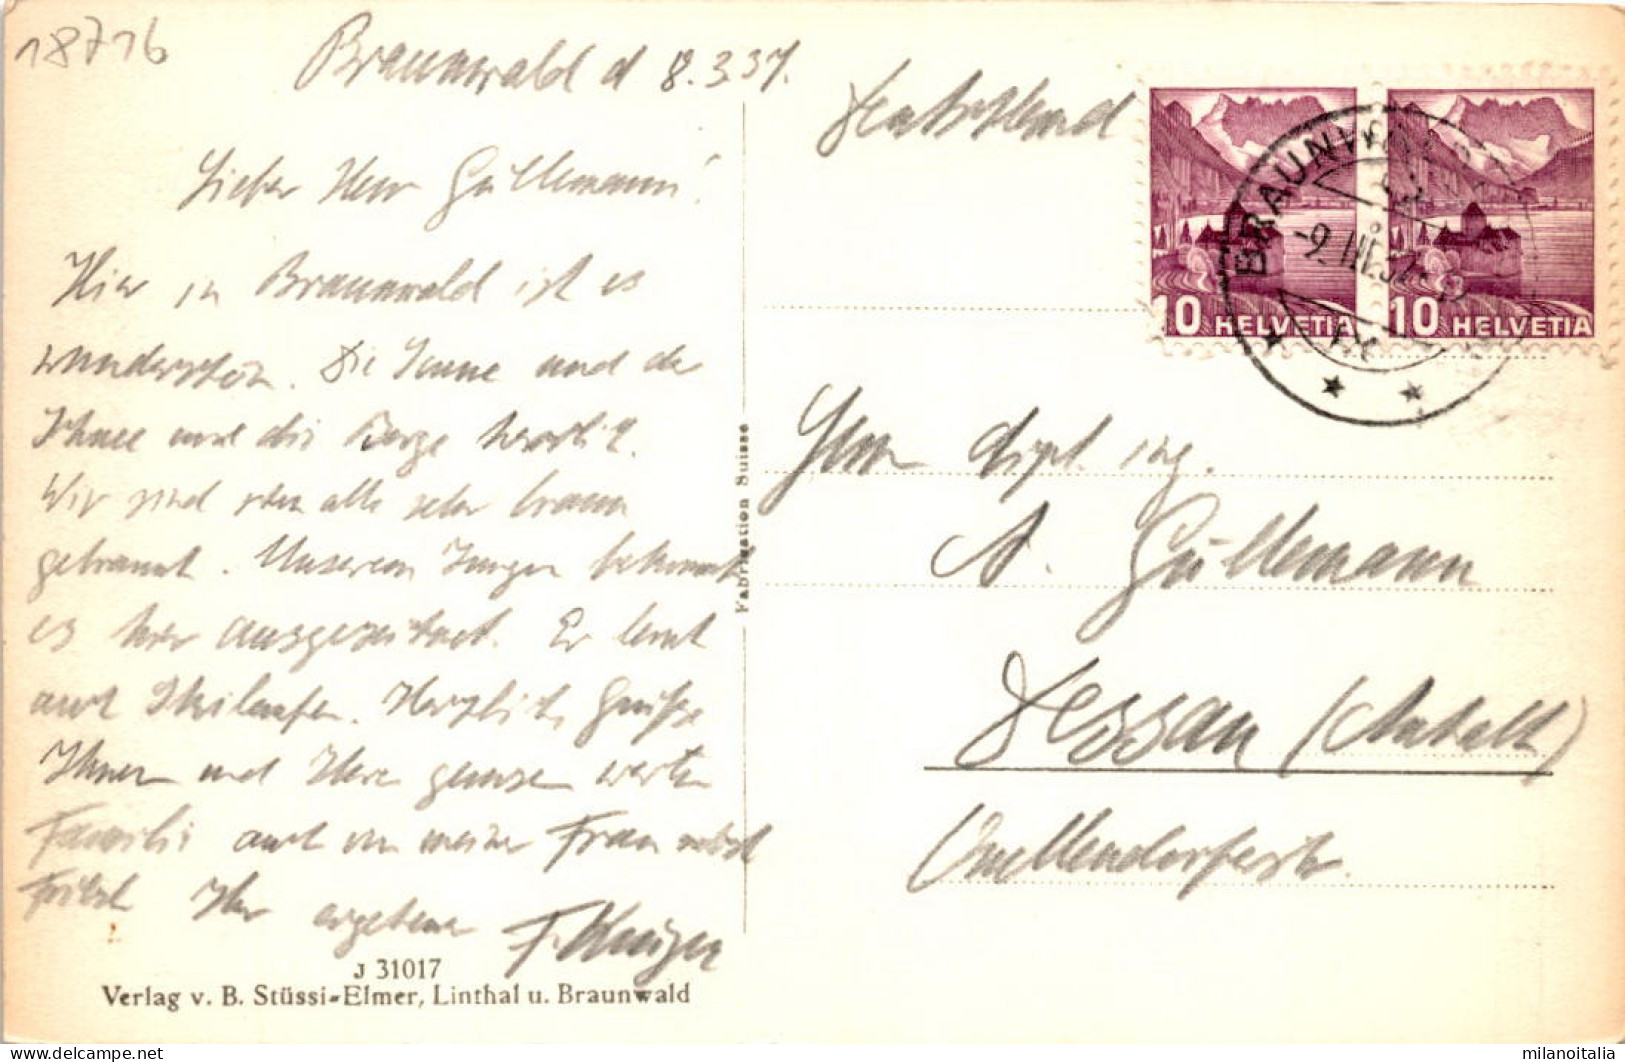 18716
Braunwald d 8.3.37.
Lieber Herr Güllemann!
Hier in Braunwald ist es
wunderschön. Die Sonne und der
Schnee und die Berge herrlich.
Wir sind schon alle sehr braun
gebrannt. Unserem Jungen bekommt
es hier ausgezeichnet. Er lernt
auch Skilaufen. Herzliche Grüsse
Ihnen und Ihrer ganzen werten
Familie auch von meiner Frau nebst
Ihr ergebener
J 31017
Verlag v. B. Stüssi-Elmer, Linthal u. Braunwald
Fabrication Suisse
Deutschland
10 HELVETIA
10 HELVETIA
BRAUNWALD
-9.III.37
Herrn dipl. ing.
A. Güllemann
Dessau (Anhalt)
Quellendorferstr.
milanoitalia